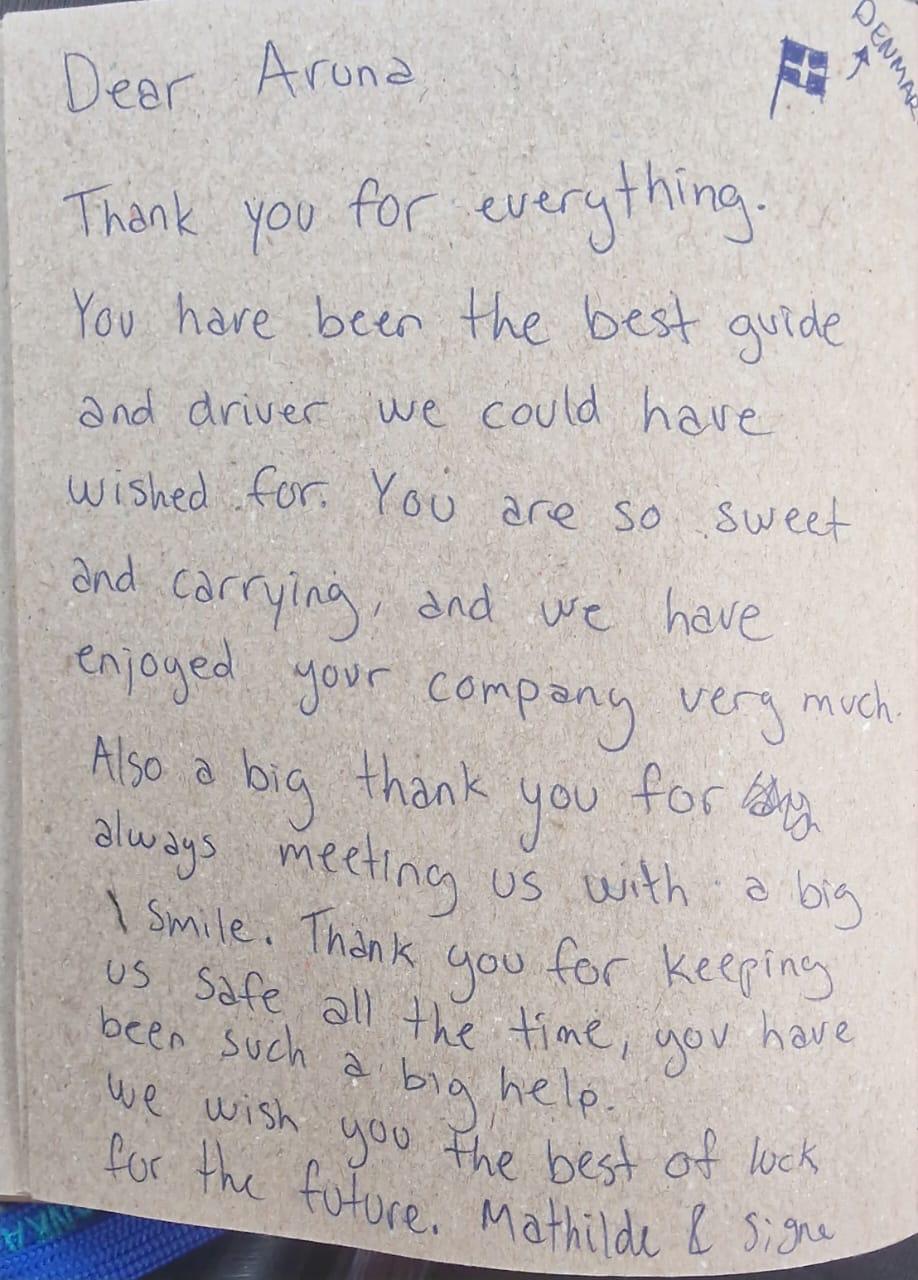 DENMAR
Dear Aruna,
Thank you for everything.
You have been the best guide
and driver we could have
wished for. You are so sweet
and carrying, and we have
enjoyed your company very much.
Also a big thank you for
always meeting us with a big
smile. Thank you for keeping
us safe all the time, you have
been such a big help.
We wish you the best of luck
for the future. Mathilde & Signe